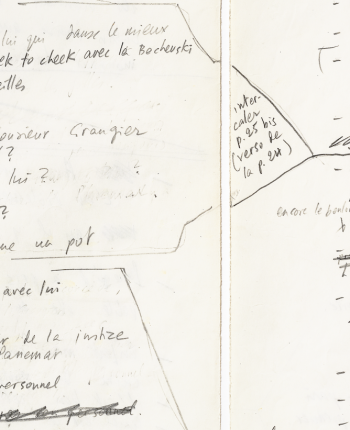 lui qui danse le mieux
ek to cheek avec la Bachenski
eilles
ousieur Grangier
?
lui ?
?
ue un pot
avec lui
r de la justice
Panemar
ersonnel
inter-
caler
p. 25 bis
(verso de
la p. 24)
encore le boulo